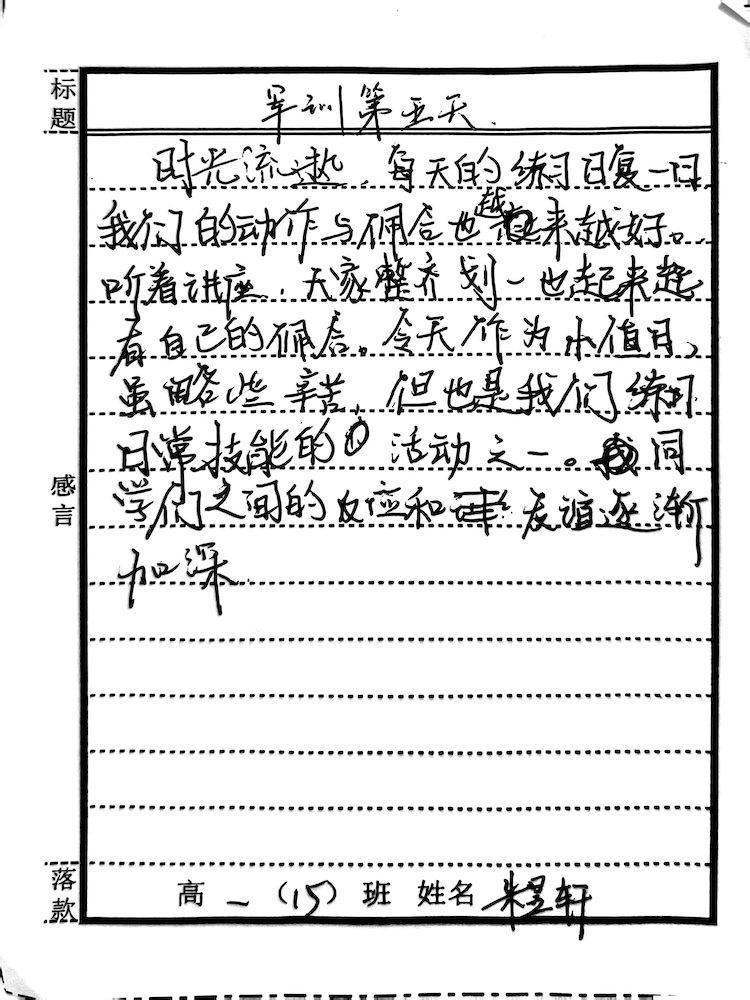 标题
军训第五天.
时光流逝,每天的练习日复一日,
我们的动作与佩合也越来越好。
听着讲座,大家整齐划一也起来越
有自己的佩合。今天作为小值日,
虽略些辛苦,但也是我们练习
日常技能的 活动之一。同
学们之间的反应和友谊逐渐
加深.
感言
落款
高一(15)班 姓名 朱昱轩